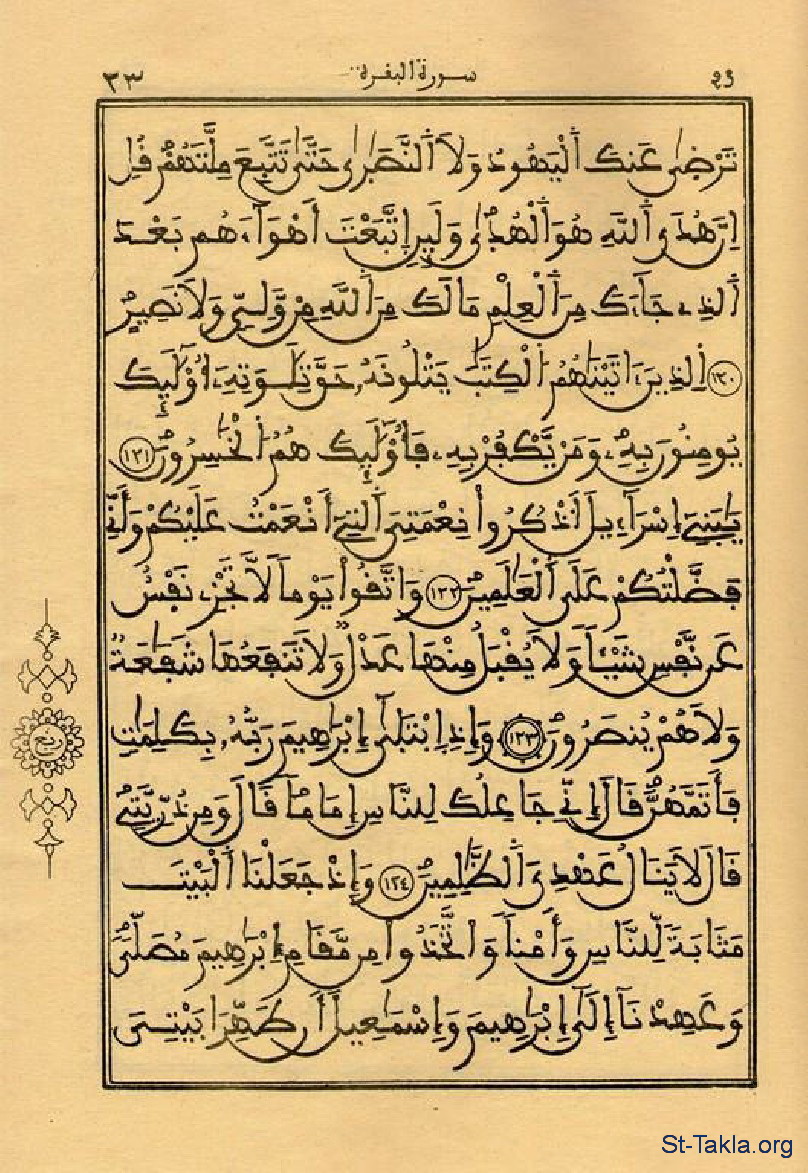 سورة البقرة ٣٣
تَرْضٰى عَنكَ اَ۬لْيَهُودُ وَلَا اَ۬لنَّصَٰرٰى حَتَّىٰ تَتَّبِعَ مِلَّتَهُمْ قُلْ
اِنَّ هُدَى اَ۬للَّهِ هُوَ اَ۬لْهُد۪ىٰ وَلَئِنِ اِ۪تَّبَعْتَ أَهْوَآءَهُم بَعْدَ
اَ۬لذِے جَآءَكَ مِنَ اَ۬لْعِلْمِ مَا لَكَ مِنَ اَ۬للَّهِ مِنْ وَّلِيّٖ وَلَا نَصِيرٍ
١٢٠ اِ۬لذِينَ ءَاتَيْنَٰهُمُ اُ۬لْكِتَٰبَ يَتْلُونَهُۥ حَقَّ تِلَٰوَتِهِۦٓ أُوْلَٰٓئِكَ
يُومِنُونَ بِهِۦ وَمَنْ يَّكْفُرْ بِهِۦ فَأُوْلَٰٓئِكَ هُمُ اُ۬لْخَٰسِرُونَ ١٢١
يَٰبَنِےٓ إِسْرَآءِيلَ اَ۟ذْكُرُوا۟ نِعْمَتِيَ اَ۬لتِےٓ أَنْعَمْتُ عَلَيْكُمْ وَأَنِّے
فَضَّلْتُكُمْ عَلَى اَ۬لْعَٰلَمِينَ ١٢٢ وَاتَّقُوا۟ يَوْماً لَّا تَجْزِے نَفْسٌ
عَن نَّفْسٍ شَيْـٔاً وَلَا يُقْبَلُ مِنْهَا عَدْلٌ وَلَا تَنفَعُهَا شَفَٰعَةٌ
وَلَا هُمْ يُنصَرُونَ ١٢٣ وَإِذِ اِ۪بْتَلَىٰٓ إِبْرَٰهِيمَ رَبُّهُۥ بِكَلِمَٰتٍ
فَأَتَمَّهُنَّ قَالَ إِنِّے جَاعِلُكَ لِلنَّاسِ إِمَاماً قَالَ وَمِن ذُرِّيَّتِے
قَالَ لَا يَنَالُ عَهْدِيَ اَ۬لظَّٰلِمِينَ ١٢٤ وَإِذْ جَعَلْنَا اَ۬لْبَيْتَ
مَثَابَةً لِّلنَّاسِ وَأَمْناً وَاتَّخَذُوا۟ مِن مَّقَامِ إِبْرَٰهِيمَ مُصَلّيٗ
وَعَهِدْنَآ إِلَىٰٓ إِبْرَٰهِيمَ وَإِسْمَٰعِيلَ أَن طَهِّرَا بَيْتِيَ
ربع
St-Takla.org